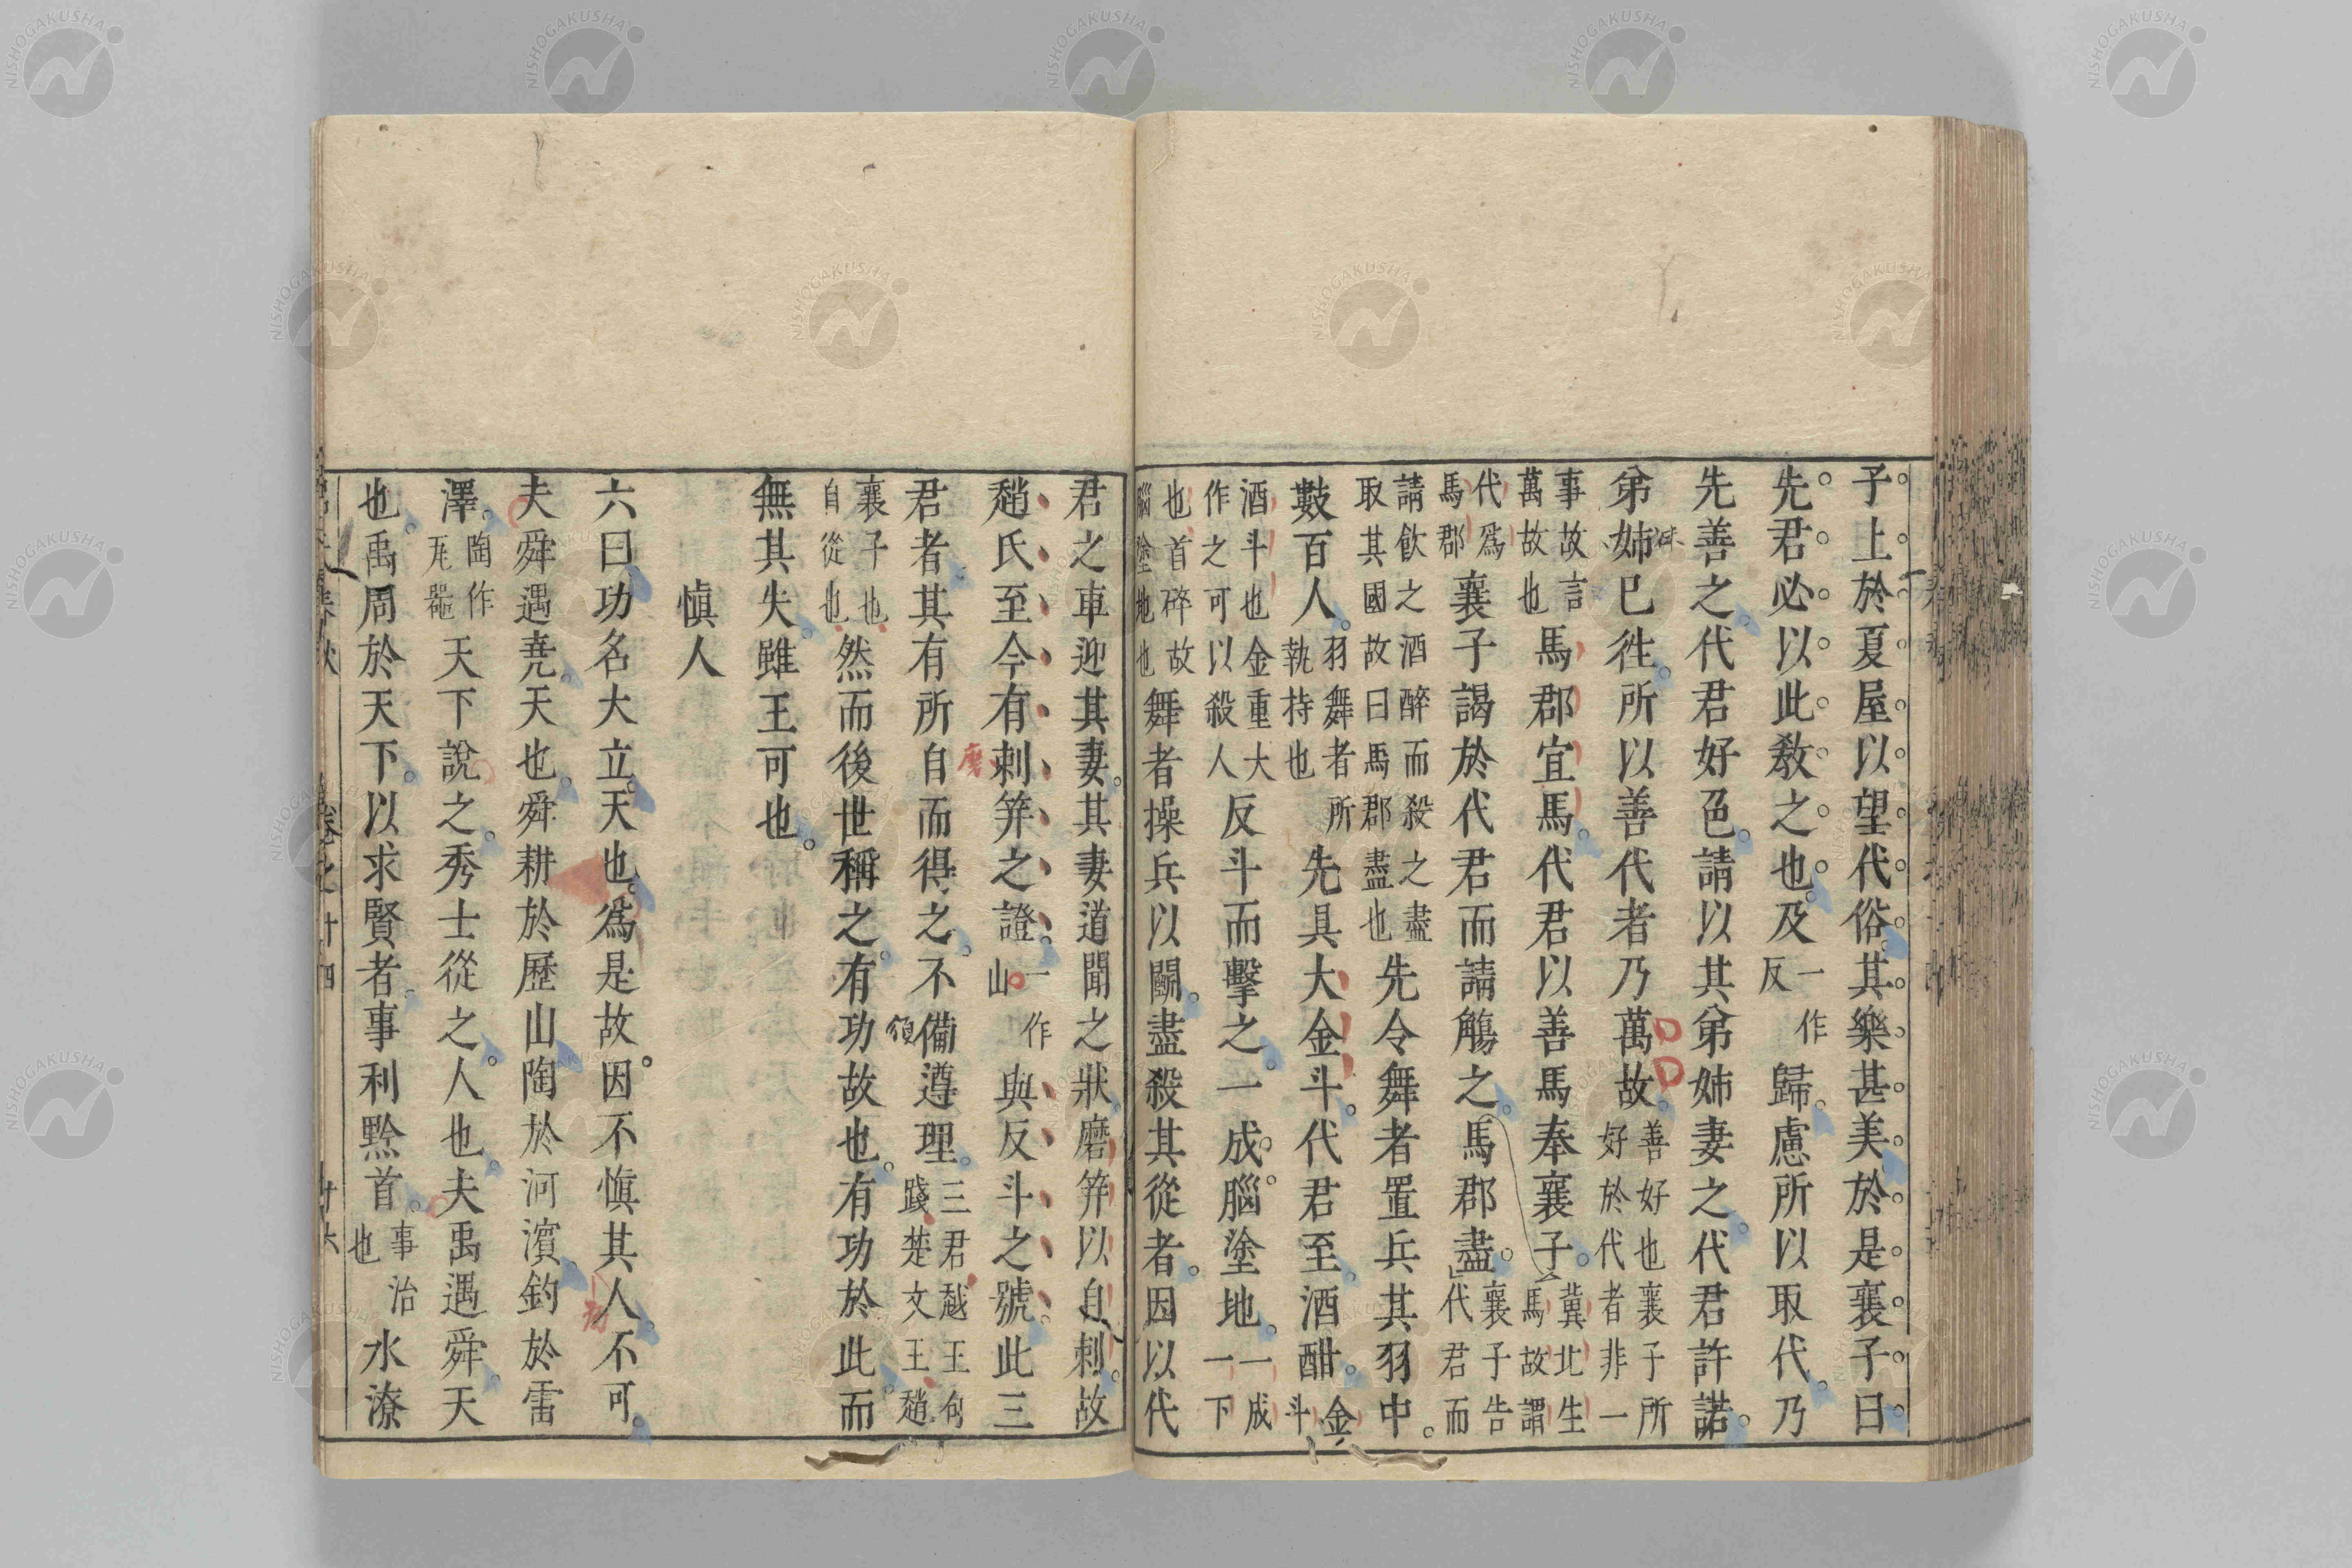 子上於夏屋以望代俗其樂甚美於是襄子曰
先君必以此敎之也及一作反歸慮所以取代乃
先善之代君好色請以其弟姉妻之代君許諾
弟姉已徃所以善代者乃萬故善好也襄子所好於代者非一
事故言萬故也馬郡宜馬代君以善馬奉襄子冀北生馬故謂
代爲馬郡襄子謁於代君而請觴之馬郡盡襄子告代君而
請飮之酒醉而殺之盡取其國故曰馬郡盡也先令舞者置兵其羽中
數百人羽舞者所執持也先具大金斗代君至酒酣金斗
酒斗也金重大作之可以殺人反斗而擊之一成腦塗地一成一下
也首碎故腦塗地也舞者操兵以鬭盡殺其從者因以代
君之車迎其妻其妻道聞之狀磨筓以自刺故
趙氏至今有刺筓之證一作山與反斗之號此三
君者其有所自而得之不備遵理三君越王句踐楚文王趙
襄子也自從也然而後世稱之有功故也有功於此而
無其失雖王可也
愼人
六曰功名大立天也爲是故因不愼其人不可
夫舜遇堯天也舜耕於歷山陶於河濵釣於雷
澤陶作瓦器天下說之秀士從之人也夫禹遇舜天
也禹周於天下以求賢者事利黔首事治也水潦
春秋
卷之十四
磨
領
NISHOGAKUSHA